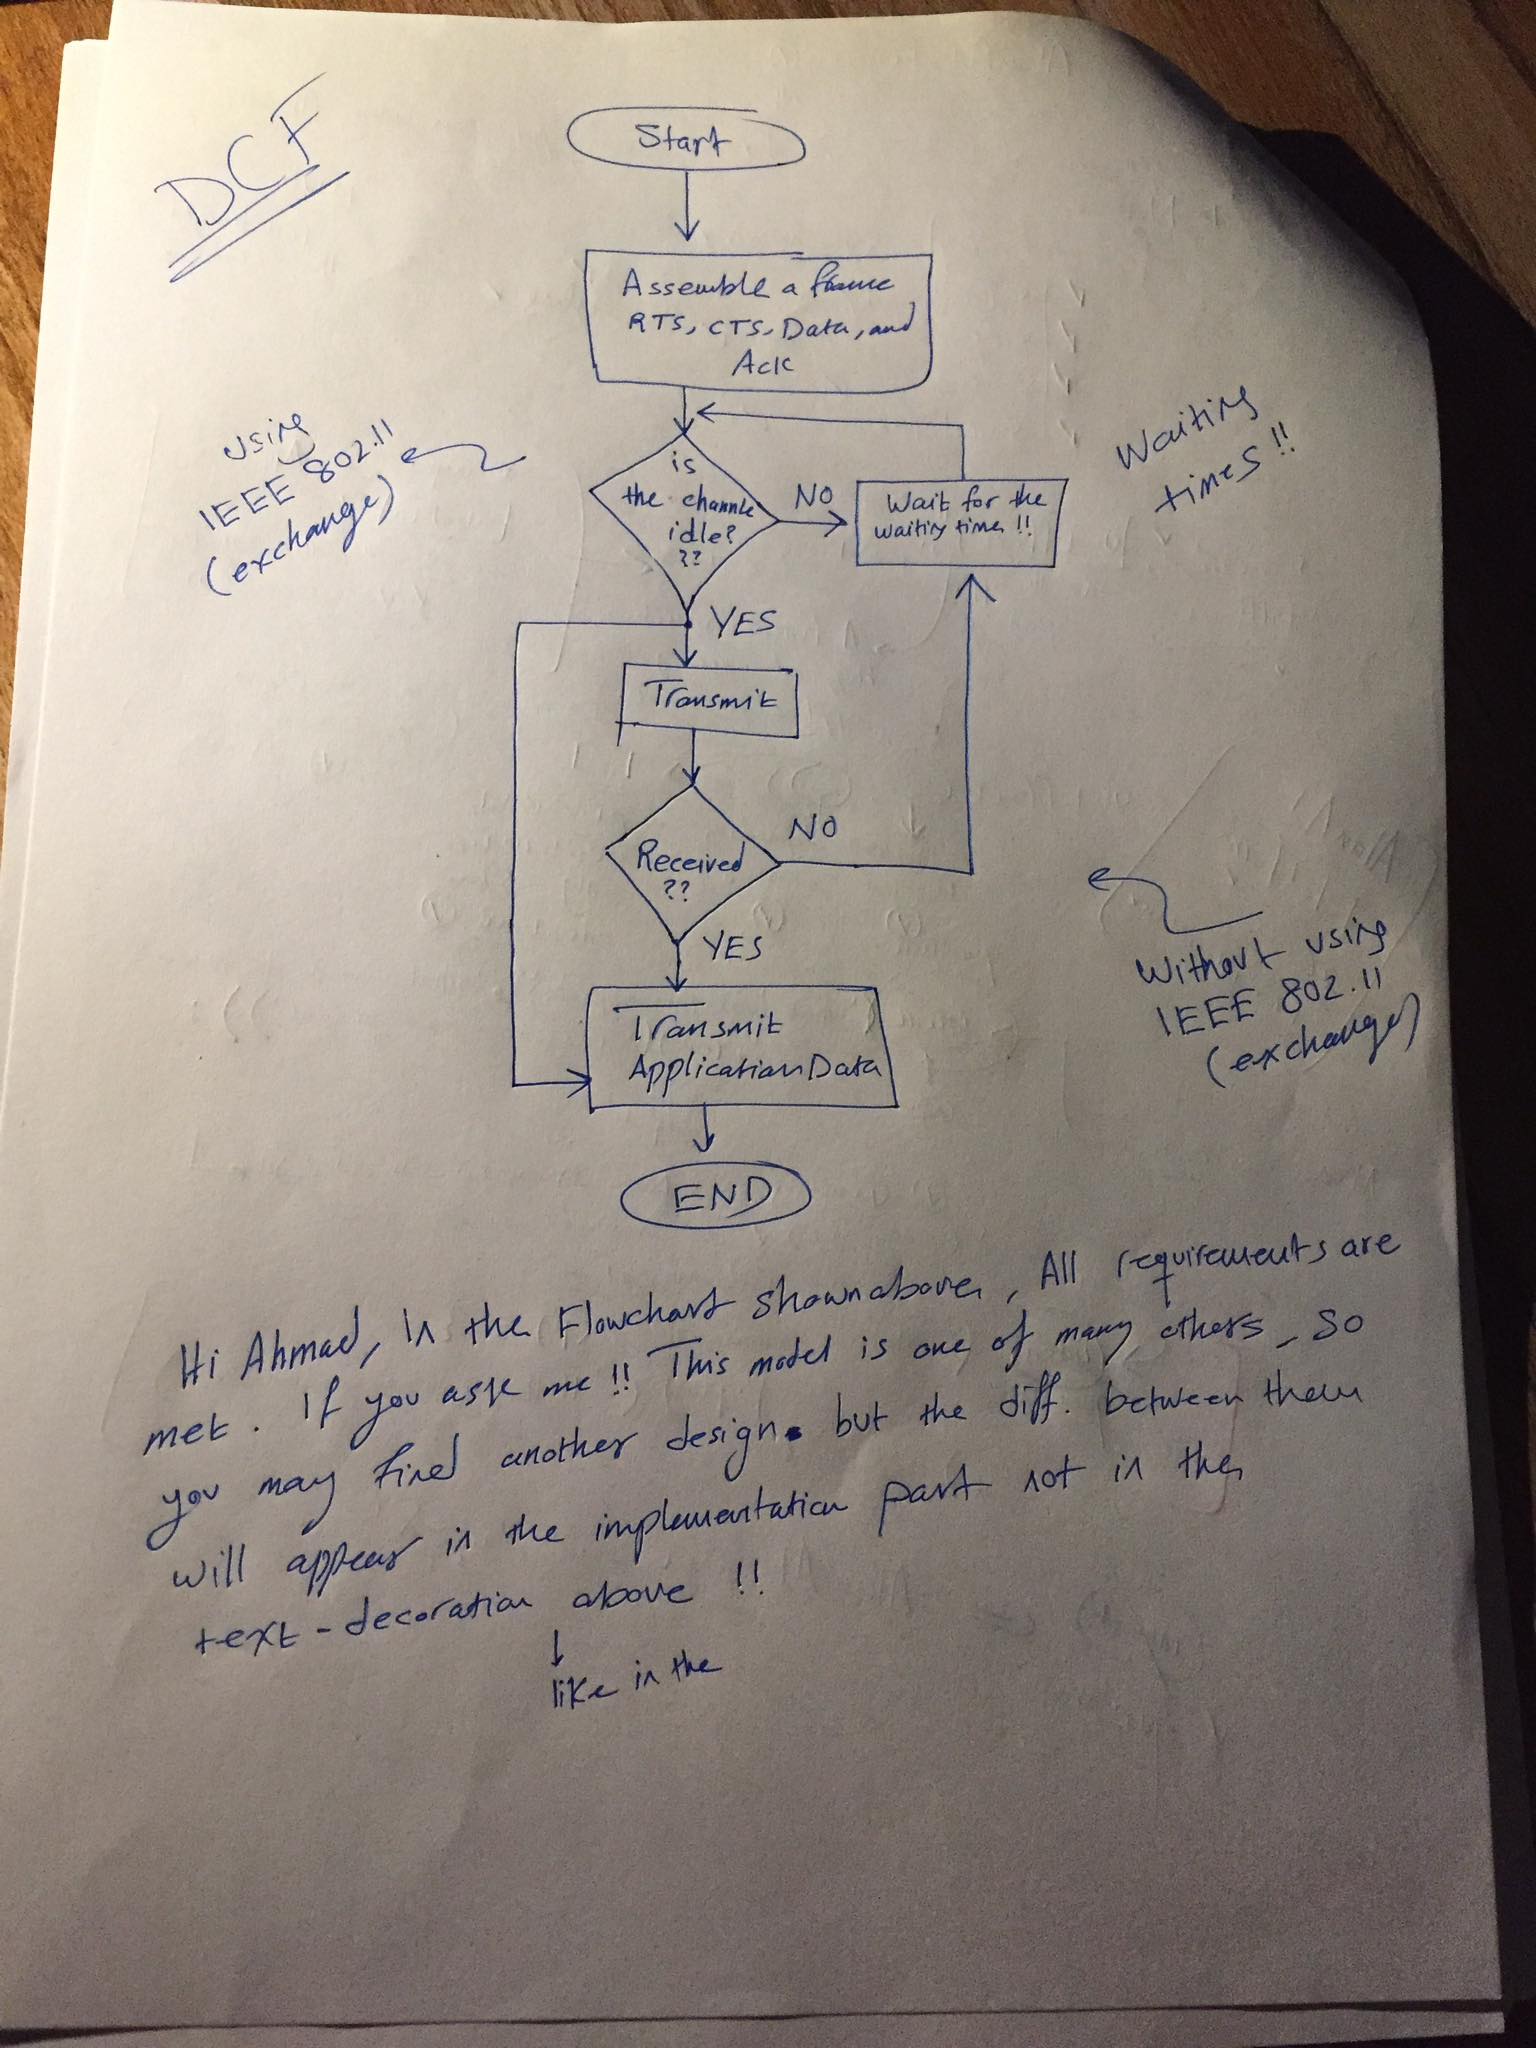 DCF
Start
Assemble a frame
RTS, CTS, Data, and
Ack
using
IEEE 802.11
(exchange)
is
the channle
idle?
??
NO
Wait for the
waiting time !!
Waiting
times !!
YES
Transmit
Received
??
NO
YES
Without using
IEEE 802.11
(exchange)
Transmit
Application Data
END
Hi Ahmad, In the Flowchart shown above, All requirements are
met. If you ask me !! This model is one of many others, so
you may find another design. but the diff. between them
will appear in the implementation part not in the
text-decoration above !!
like in the